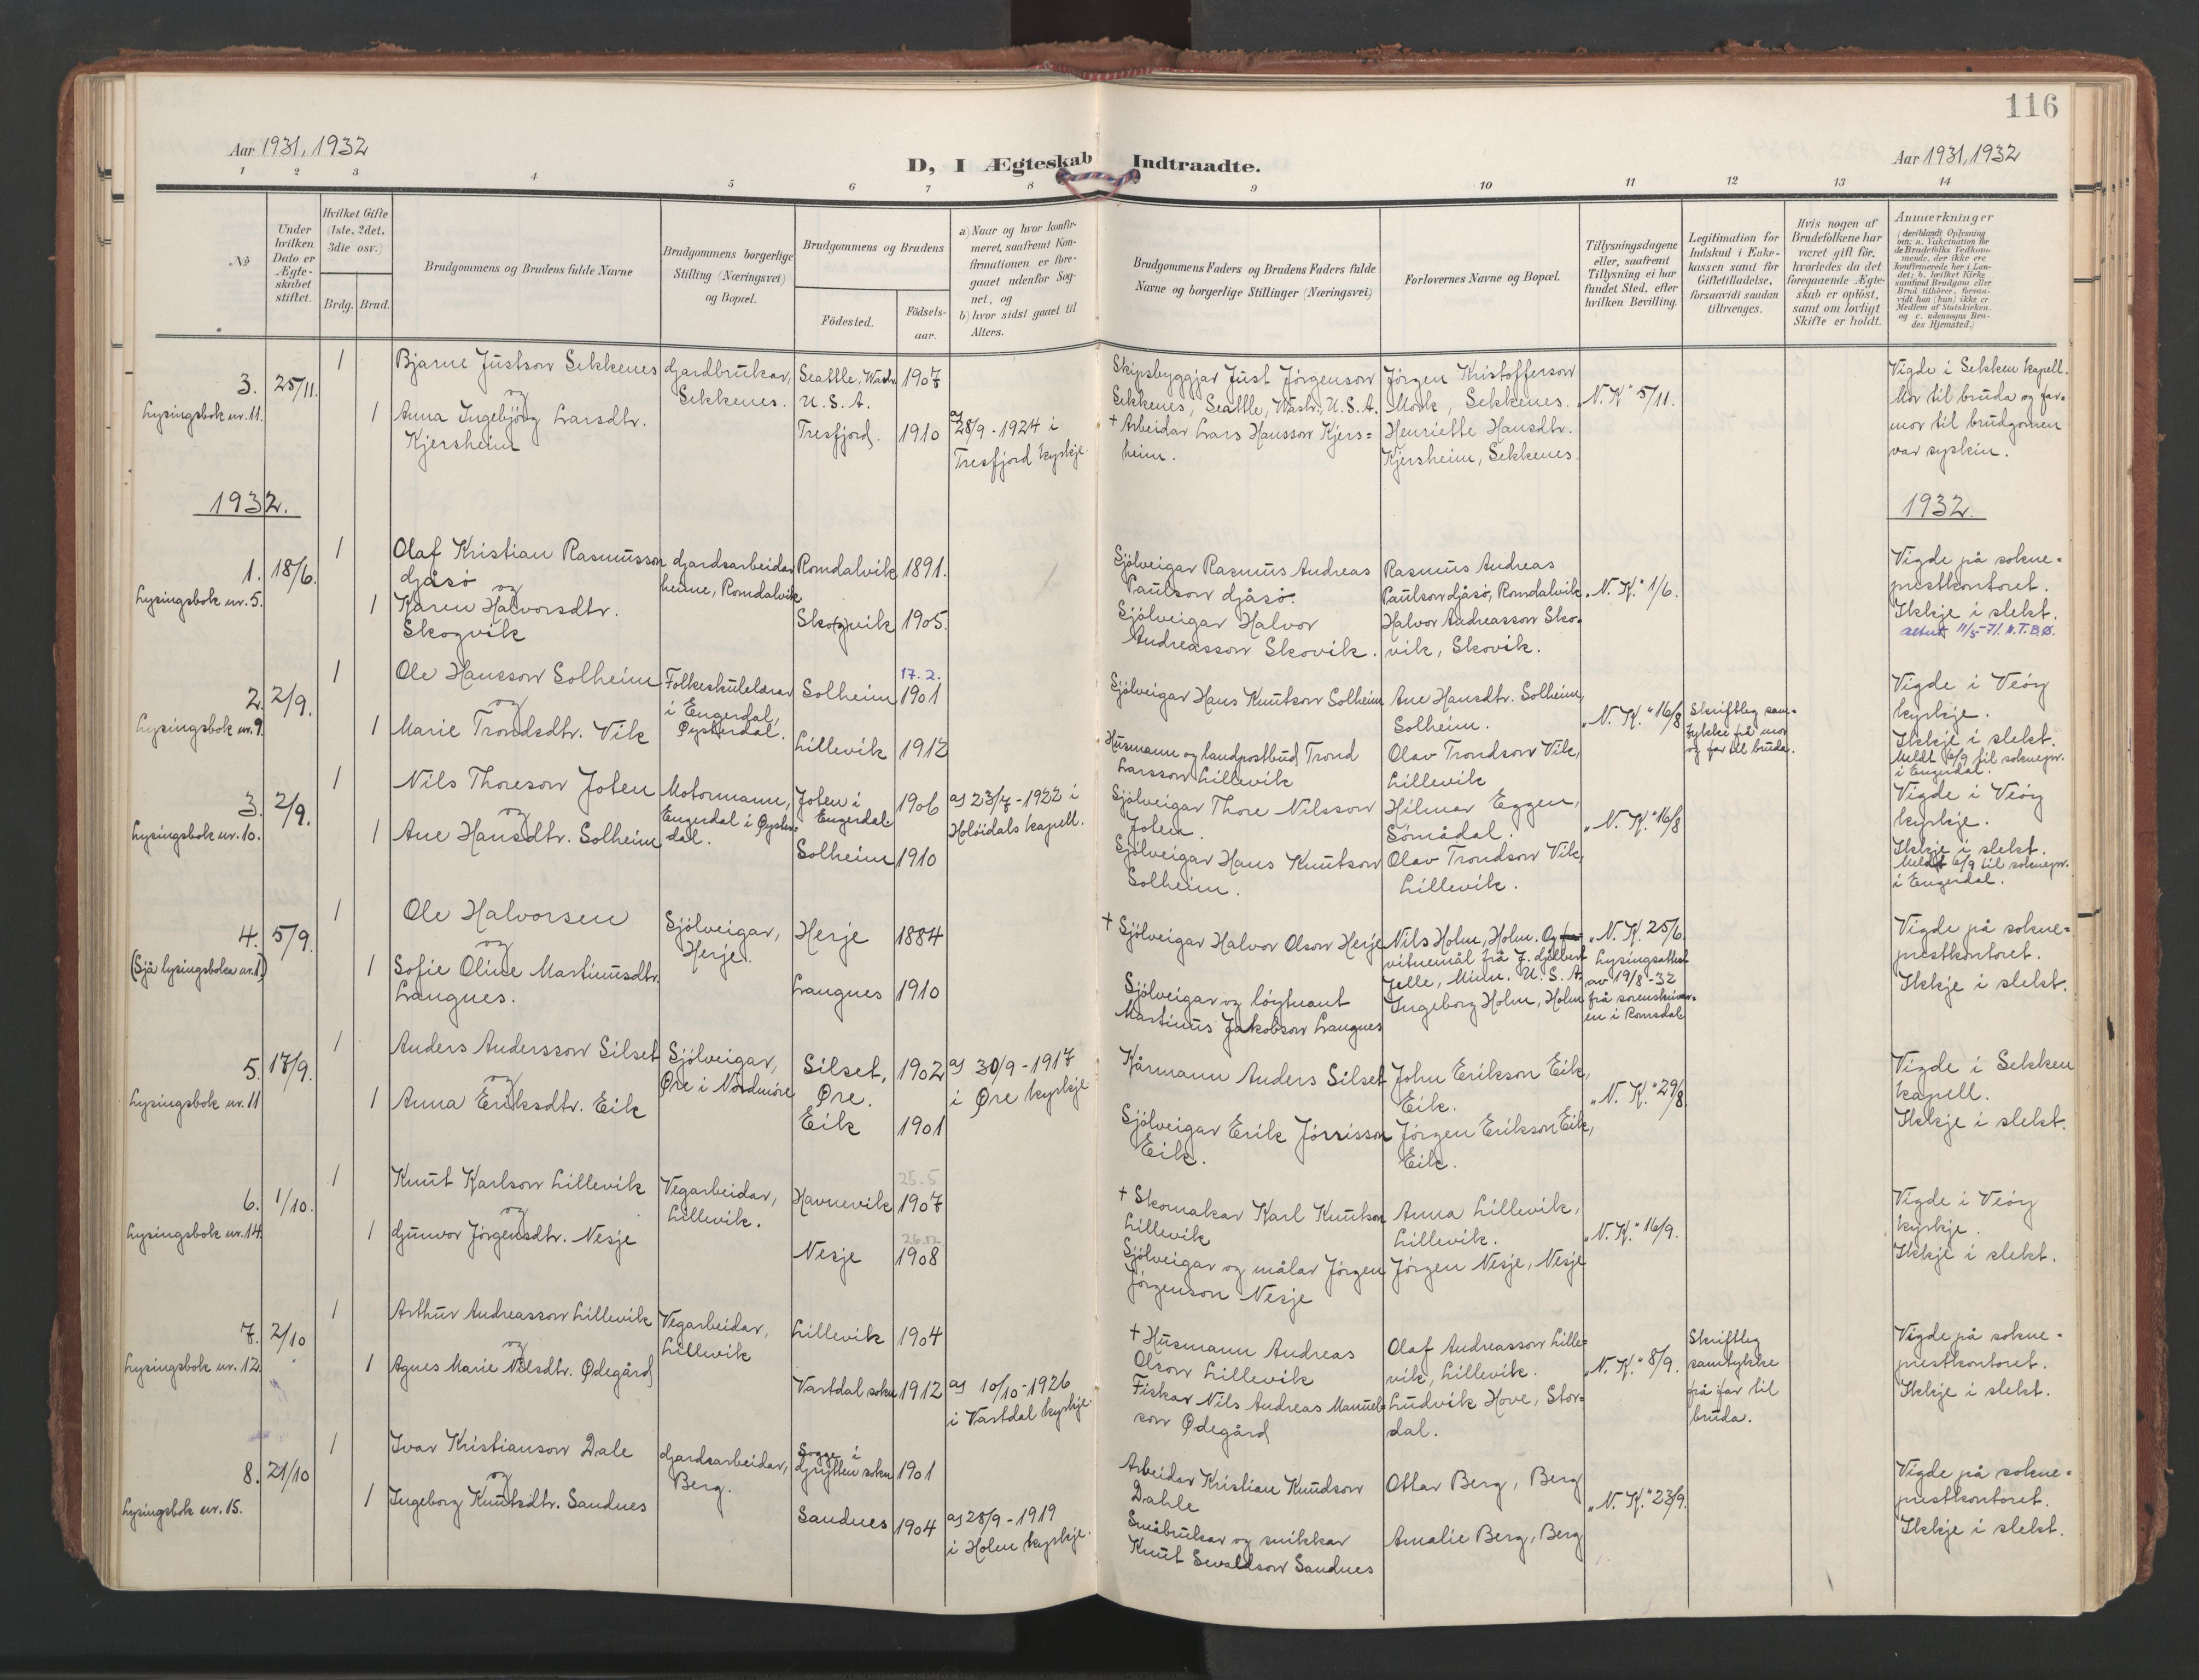 116
Aar 1931, 1932
D, I Ægteskab Indtraadte.
Aar 1931, 1932
1 2 3 4 5 6 7 8 9 10 11 12 13 14
№
Under hvilken Dato er Ægte-skabet stiftet.
Hvilket Gifte (1ste, 2det, 3die osv.)
Brdg. Brud.
Brudgommens og Brudens fulde Navne
Brudgommens borgerlige Stilling (Næringsvei) og Bopæl.
Brudgommens og Brudens
Födested.
Födsels-aar.
a) Naar og hvor konfir-meret, saafremt Kon-firmationen er fore-gaaet udenfor Sog-net, og
b) hvor sidst gaaet til Alters.
Brudgommens Faders og Brudens Faders fulde Navne og borgerlige Stillinger (Næringsvei)
Forlovernes Navne og Bopæl.
Tillysningsdagene eller, saafremt Tillysning ei har fundet Sted, efter hvilken Bevilling.
Legitimation for Indskud i Enke-kassen samt for Giftetilladelse, forsaavidt saadan tiltrænges.
Hvis nogen af Brudefolkene har været gift för, hvorledes da det foregaaende Ægte-skab er oplöst, samt om lovligt Skifte er holdt.
Anmærkninger
(deriblandt Oplysning om: a. Vakcination for de Brudefolks Vedkom-mende, der ikke ere konfirmerede her i Lan-det; b. hvilket Kirke-samfund Brudgom eller Brud tilhörer, forsaa-vidt han (hun) ikke er Medlem af Statskirken. og c. udensogns Bru-des Hjemsted.)
3. 25/11.
Lysingsbok nr. 11.
1
Bjarne Justson Sekkenes
og
1 Anna Ingebjörg Larsdtr.
Kjersheim
Gardbrukar,
Sekkenes.
Seattle, Wash.
U.S.A.
1907
Tresfjord. 1910
a) 28/9 - 1924 i
Tresfjord kyrkje.
Skipsbyggjar Just Jörgenson
Sekkenes, Seattle, Wash., U.S.A.
† Arbeidar Lars Hansson Kjers=
heim.
Jörgen Kristofferson
Mork, Sekkenes.
Henriette Hansdtr.
Kjersheim, Sekkenes.
"N. K." 5/11.
Vigde i Sekken kapell.
Mor til bruda og far=
mor til brudgomen
var syskin.
1932.
1932.
1. 18/6.
Lysingsbok nr. 5.
1
Olaf Kristian Rasmusson
Gåsö
og
1 Karen Halvorsdtr.
Skogvik
Gardsarbeidar
heime, Romdalvik
Romdalvik 1891.
Skogvik 1905.
Sjölveigar Rasmus Andreas
Paulson Gåsö.
Sjölveigar Halvor
Andreasson Skovik.
Rasmus Andreas
Paulson Gåsö, Romdalvik
Halvor Andreasson Sko=
vik, Skovik.
"N. K." 1/6.
Vigde på sokne=
prestkontoret.
Ikkje i slekt.
11/5-71.
2. 2/9.
Lysingsbok nr. 9.
1
Ole Hansson Solheim
og
1 Marie Trondsdtr. Vik
Folkeskulelærar
i Engerdal,
Øysterdal.
17. 2.
Solheim 1901
Lillevik 1912
Sjölveigar Hans Knutson Solheim
Husmann og landpostbud Trond
Larsson Lillevik
Ane Hansdtr. Solheim,
Solheim.
Olav Trondson Vik,
Lillevik
"N. K." 16/8
Skriftleg sam=
tykke frå mor
og far til bruda.
Vigde i Veöy
kyrkje.
Ikkje i slekt.
Meldt 6/9 til soknepr.
i Engerdal.
3. 2/9.
Lysingsbok nr. 10.
1
Nils Thoreson Joten
og
1 Ane Hansdtr. Solheim
Motormann,
Engerdal i Øyster=
dal.
Joten i
Engerdal
1906
Solheim 1910
a) 23/7 - 1922 i
Holöidals kapell.
Sjölveigar Thore Nilsson
Joten.
Sjölveigar Hans Knutson
Solheim.
Hilmar Eggen,
Sömådal.
Olav Trondson Vik,
Lillevik.
"N. K." 16/8
Vigde i Veöy
kyrkje.
Ikkje i slekt.
Meldt 6/9 til soknepr.
i Engerdal.
4. 5/9.
(Sjå lysingsboka nr. 1.)
1
Ole Halvorsen
og
1 Sofie Oline Martinusdtr.
Langnes.
Sjölveigar,
Herje.
Herje 1884
Langnes 1910
† Sjölveigar Halvor Olson Herje
Sjölveigar og löytnant
Martinus Jakobson Langnes
Nils Holm, Holm. Og
vitnemål frå J. Gilbert
Jelle, Minn. U.S.A.
Ingeborg Holm, Holm
"N. K." 25/6.
Lysingsattest
av 19/8-32
frå sorenskriva=
en i Romsdal
Vigde på sokne=
prestkontoret.
Ikkje i slekt.
5. 17/9.
Lysingsbok nr. 11
1
Anders Andersson Silset
og
1 Anna Eriksdtr. Eik
Sjölveigar,
Øre i Nordmöre
Silset,
Øre.
1902
Eik 1901
a) 30/9 - 1917
i Øre kyrkje
Kårmann Anders Silset
Sjölveigar Erik Jörrisson
Eik.
John Erikson Eik,
Eik.
Jörgen Erikson Eik,
Eik.
"N. K." 29/8.
Vigde i Sekken
kapell.
Ikkje i slekt.
6. 1/10.
Lysingsbok nr. 14.
1
Knut Karlson Lillevik
og
1 Gunvor Jörgensdtr. Nesje
Vegarbeidar,
Lillevik.
25.5
Havnevik 1907
26.12
Nesje 1908
† Skomakar Karl Knutson
Lillevik
Sjölveigar og målar Jörgen
Jörgenson Nesje
Anna Lillevik,
Lillevik.
Jörgen Nesje, Nesje
"N. K." 16/9.
Vigde i Veöy
kyrkje.
Ikkje i slekt.
7. 2/10
Lysingsbok nr. 12.
1
Arthur Andreasson Lillevik
og
1 Agnes Marie Nilsdtr. Ødegård
Vegarbeidar,
Lillevik
Lillevik 1904
Vartdal sokn 1912
a) 10/10 - 1926
i Vartdal kyrkje.
† Husmann Andreas
Olson Lillevik
Fiskar Nils Andreas Manuel=
son Ødegård
Olaf Andreasson Lille=
vik, Lillevik.
Ludvik Hove, Stor=
dal.
"N. K." 8/9.
Skriftleg
samtykke
frå far til
bruda.
Vigde på sokne=
prestkontoret.
Ikkje i slekt.
8. 21/10
Lysingsbok nr. 15.
1
Ivar Kristianson Dale
og
1 Ingeborg Knutsdtr. Sandnes
Gardsarbeidar,
Berg.
Sogge i
Grytten sokn
1901
Sandnes 1904
a) 28/9 - 1919
i Holm kyrkje.
Arbeidar Kristian Knudson
Dahle
Småbrukar og snikkar
Knut Sevaldson Sandnes
Ottar Berg, Berg
Amalie Berg, Berg
"N. K." 23/9.
Vigde på sokne=
prestkontoret.
Ikkje i slekt.